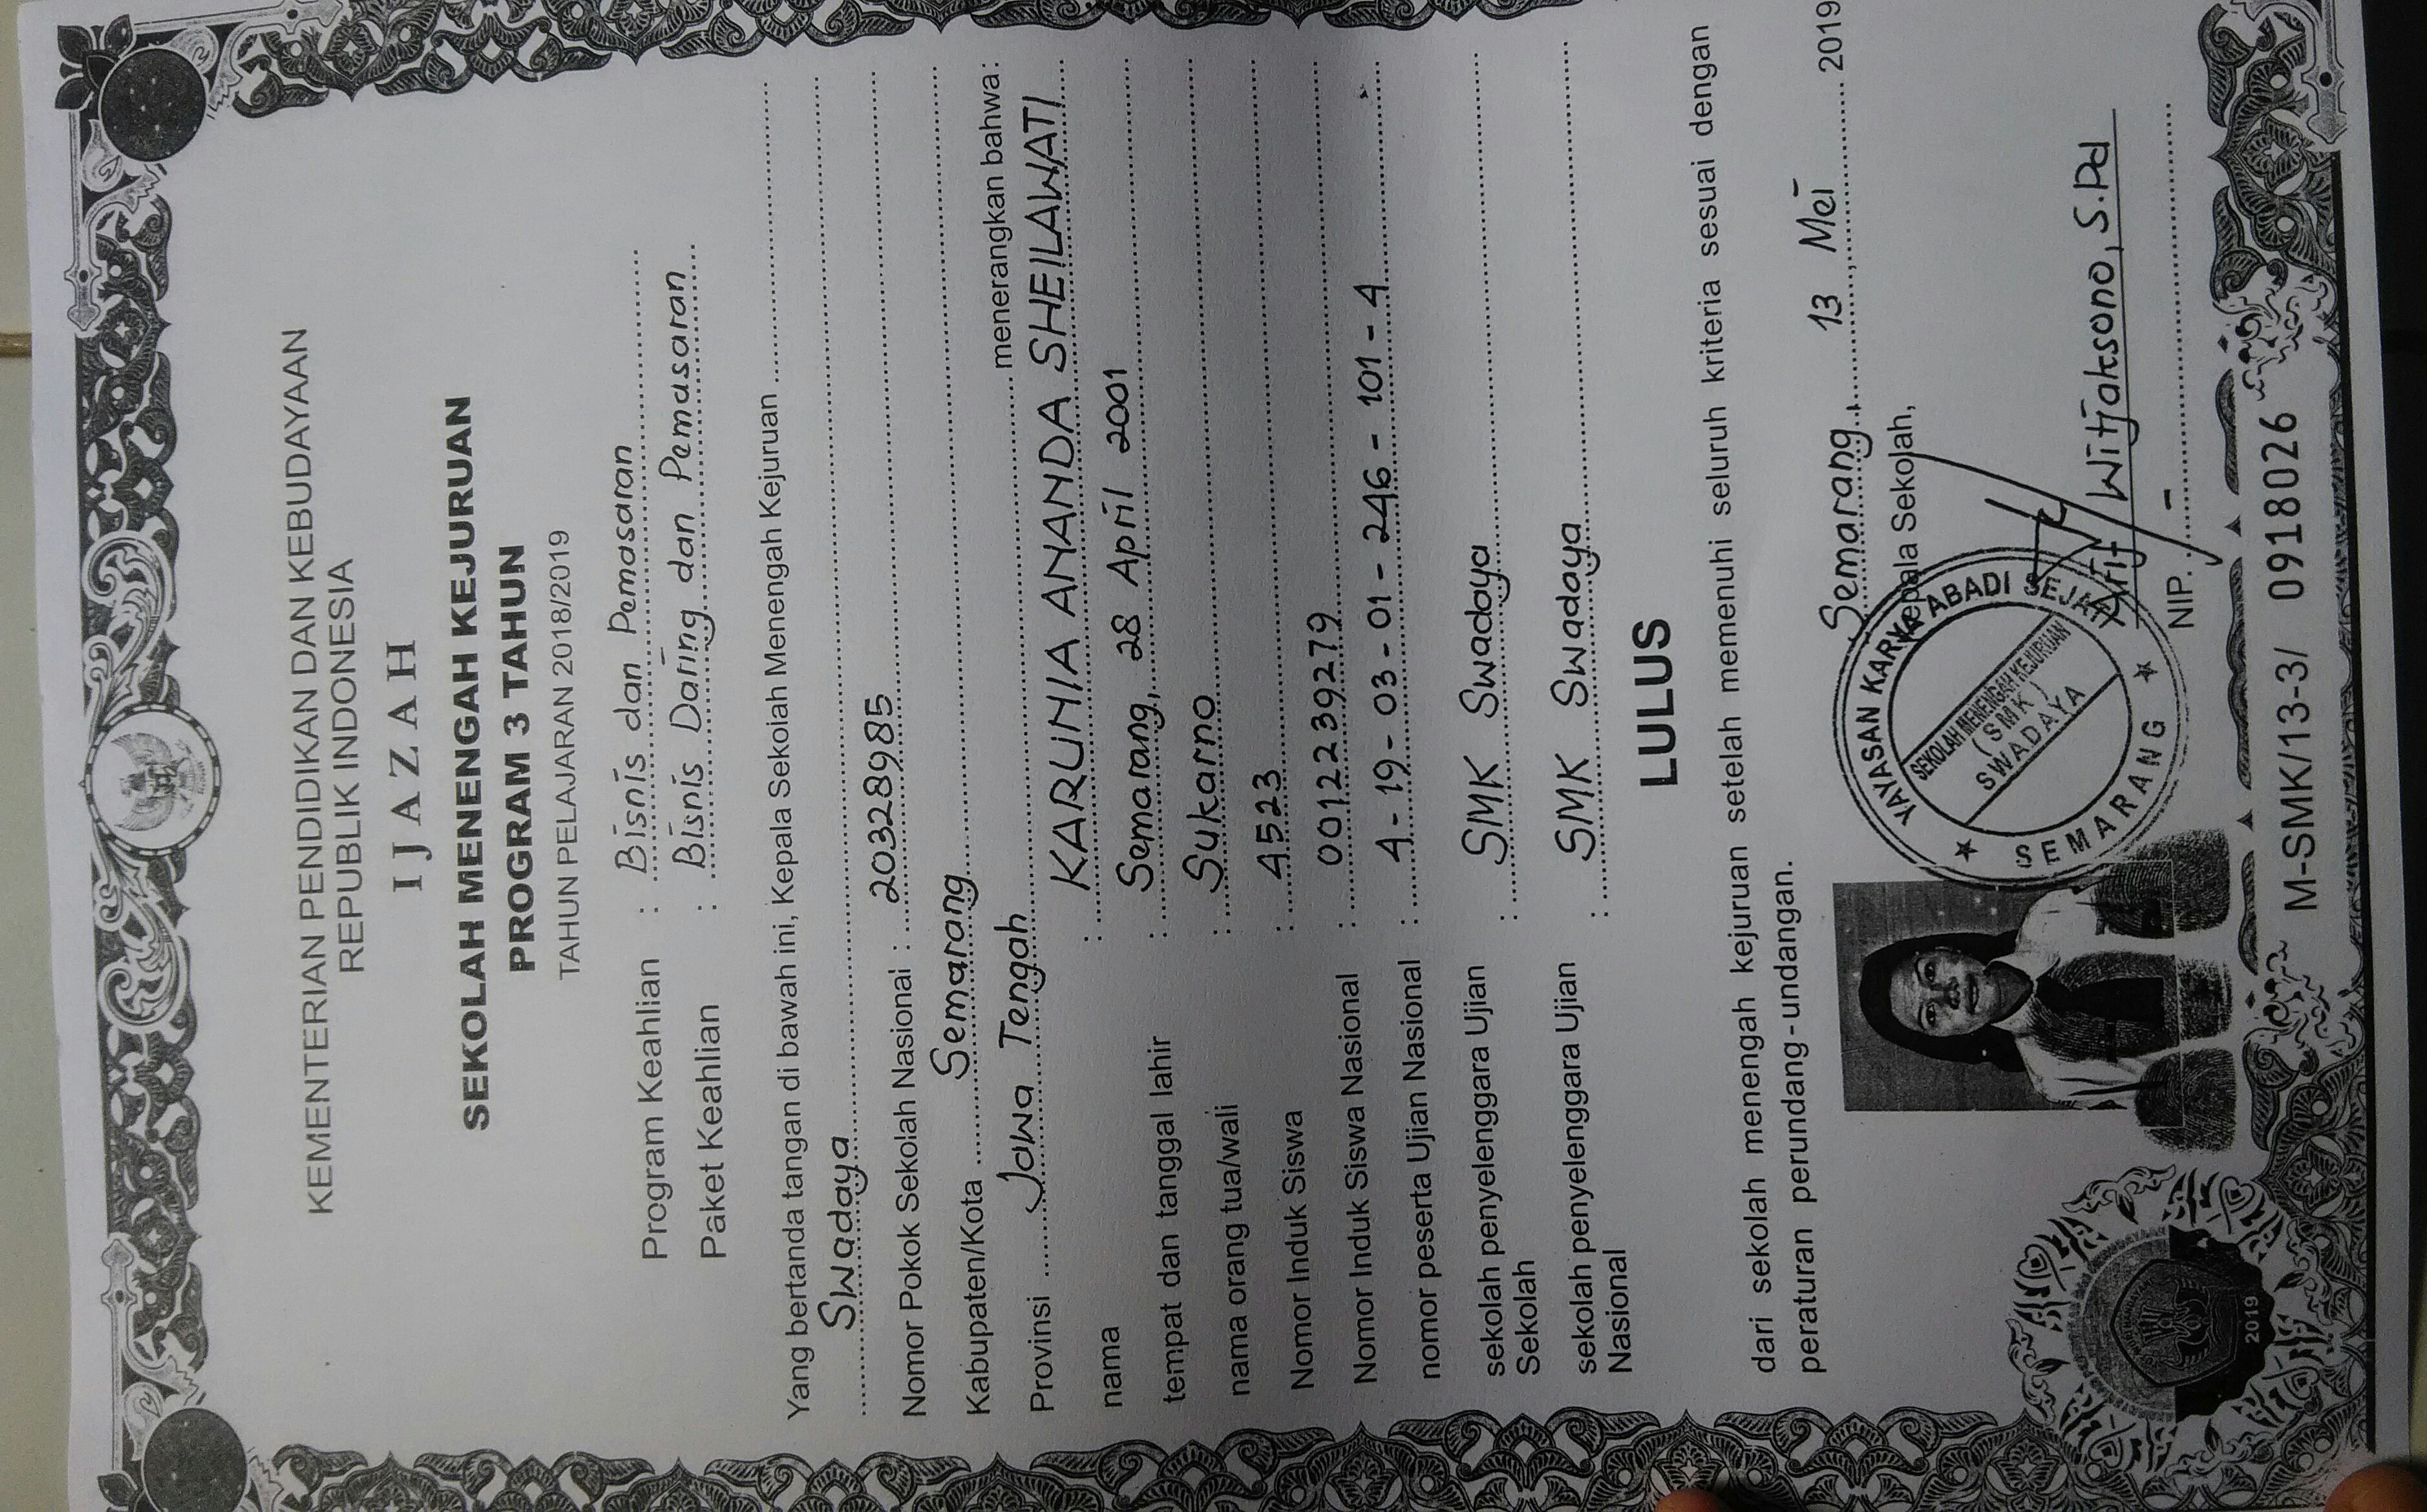 KEMENTERIAN PENDIDIKAN DAN KEBUDAYAAN
REPUBLIK INDONESIA
IJAZAH
SEKOLAH MENENGAH KEJURUAN
PROGRAM 3 TAHUN
TAHUN PELAJARAN 2018/2019
Program Keahlian : Bisnis dan Pemasaran
Paket Keahlian : Bisnis Daring dan Pemasaran
Yang bertanda tangan di bawah ini, Kepala Sekolah Menengah Kejuruan
Swadaya
Nomor Pokok Sekolah Nasional : 20328985
Kabupaten/Kota Semarang
Provinsi Jawa Tengah menerangkan bahwa:
nama : KARUNIA ANANDA SHEILAWATI
tempat dan tanggal lahir : Semarang, 28 April 2001
nama orang tua/wali : Sukarno
Nomor Induk Siswa : 4523
Nomor Induk Siswa Nasional : 0012239279
nomor peserta Ujian Nasional : 4-19-03-01-246-101-4
sekolah penyelenggara Ujian : SMK Swadaya
Sekolah
sekolah penyelenggara Ujian : SMK Swadaya
Nasional
LULUS
dari sekolah menengah kejuruan setelah memenuhi seluruh kriteria sesuai dengan
peraturan perundang-undangan.
Semarang, 13 Mei 2019
Kepala Sekolah,
YAYASAN KARYA ABADI SEJATI
SEKOLAH MENENGAH KEJURUAN
(SMK)
SWADAYA
SEMARANG
Arif Witjaksono, S.Pd
NIP. -
2019
M-SMK/13-3/ 0918026